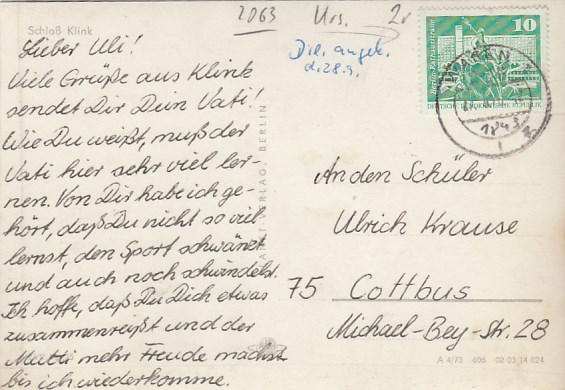 2063 Urs. 2v
Schloß Klink
Lieber Uli!
Viele Grüße aus Klink
sendet Dir Dein Vati!
Wie Du weißt, muß der
Vati hier sehr viel ler-
nen. Von Dir habe ich ge-
hört, daß Du nicht so viel
lernst, den Sport schwänzt
und auch noch schwindelst.
Ich hoffe, daß Du Dich etwas
zusammenreißt und der
Mutti mehr Freude machst
bis ich wiederkomme.
d. 28.9.
VERLAG, BERLIN
10
DEUTSCHE DEMOKRATISCHE REPUBLIK
WAREN
An den Schüler
Ulrich Krause
75 Cottbus
Michael-Bey-Str. 28
A 4/73 606 02 03 14 024